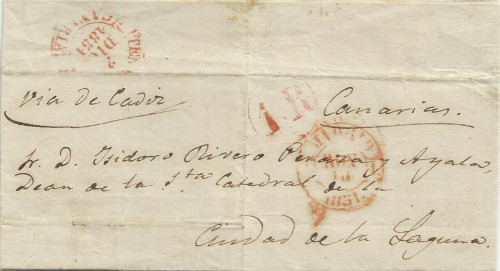 2
DIC
1851
Via de Cadiz
1. R
Canarias.
MADRID
1851.
Sr. D. Isidoro Rivero Peraza y Ayala,
Dean de la Sta Catedral de la
Ciudad de la Laguna.